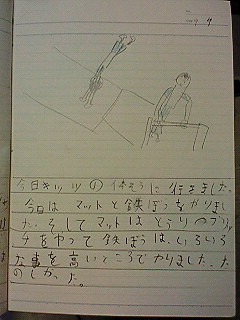 今日キッツの体そうに行きました。
今日はマットと鉄ぼうをやりまし
た。そしてマットはとうりつブリッ
チをやって鉄ぼうは、いろいろ
な事を高いところでやりました。た
のしかった。